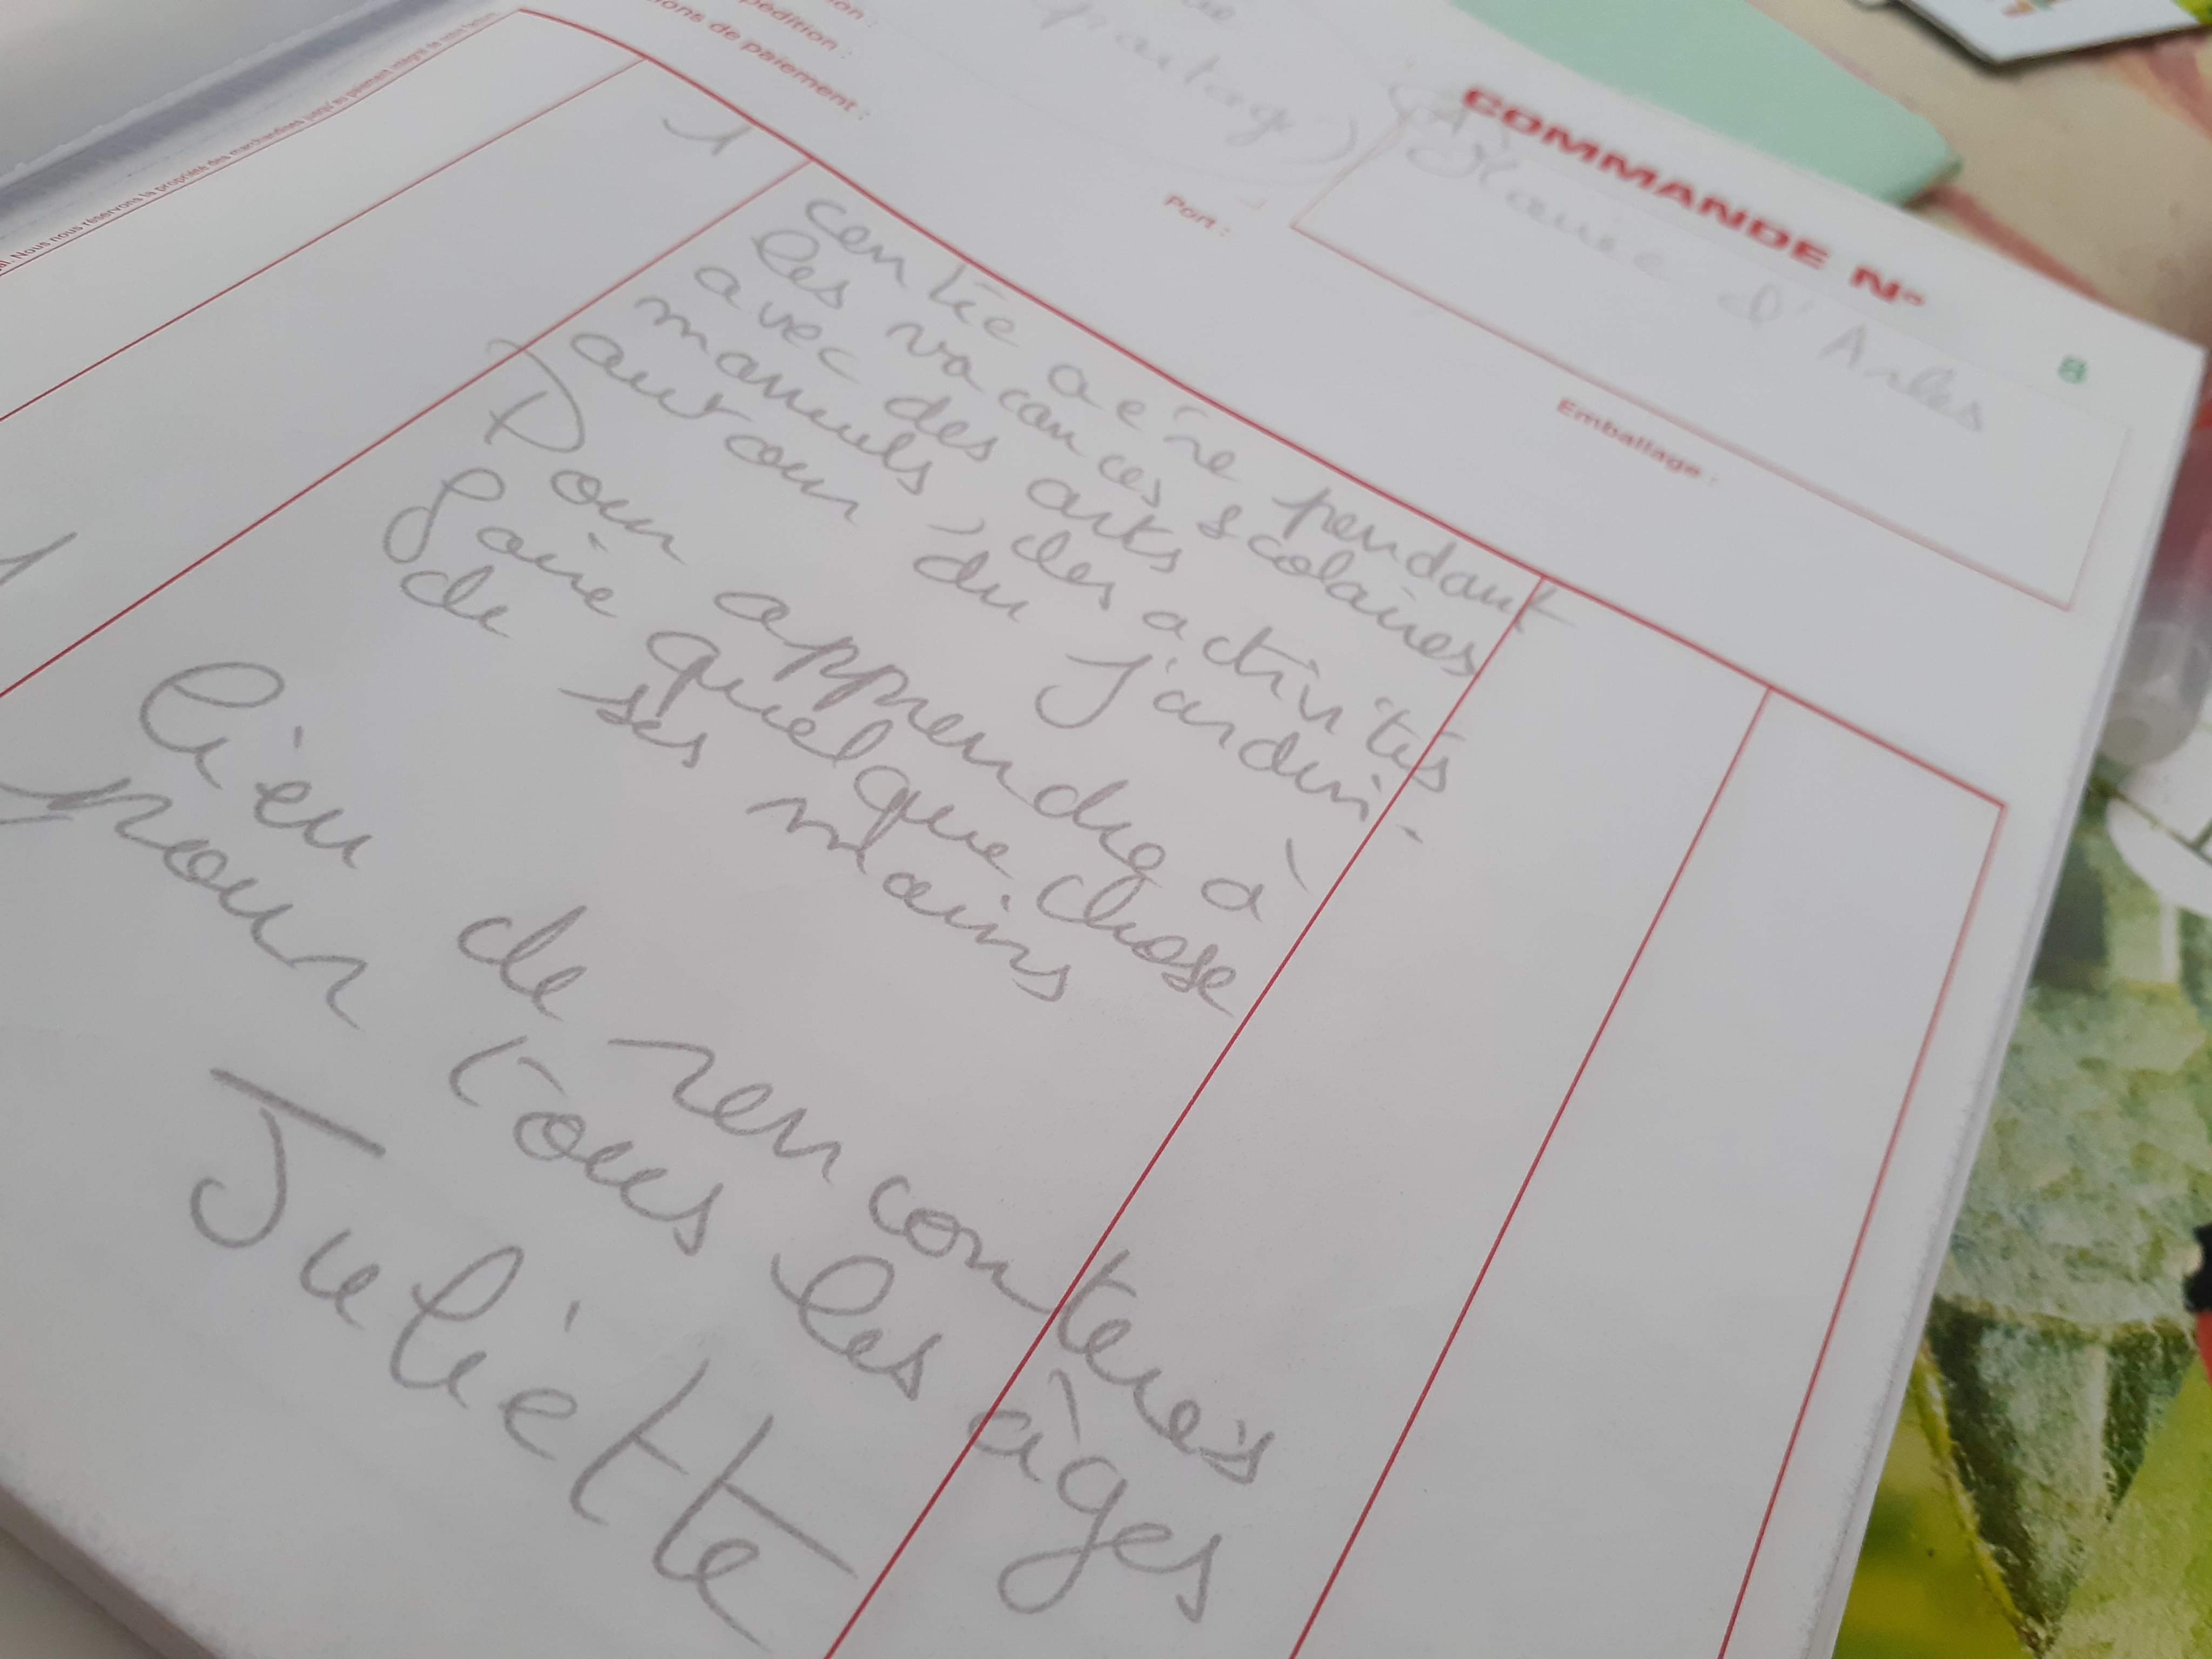 COMMANDE N°
8
pédition :
ons de paiement :
partage)
Mairie d'Arles
Port :
Emballage :
Nous nous réservons la propriété des marchandises jusqu'au paiement intégral de notre facture.
1
centre aéré pendant
les vacances scolaires
avec des arts
manuels, des activités
autour du jardin.
Pour apprendre à
faire quelque chose
de ses mains
1
lieu de rencontres
pour tous les âges
Juliette